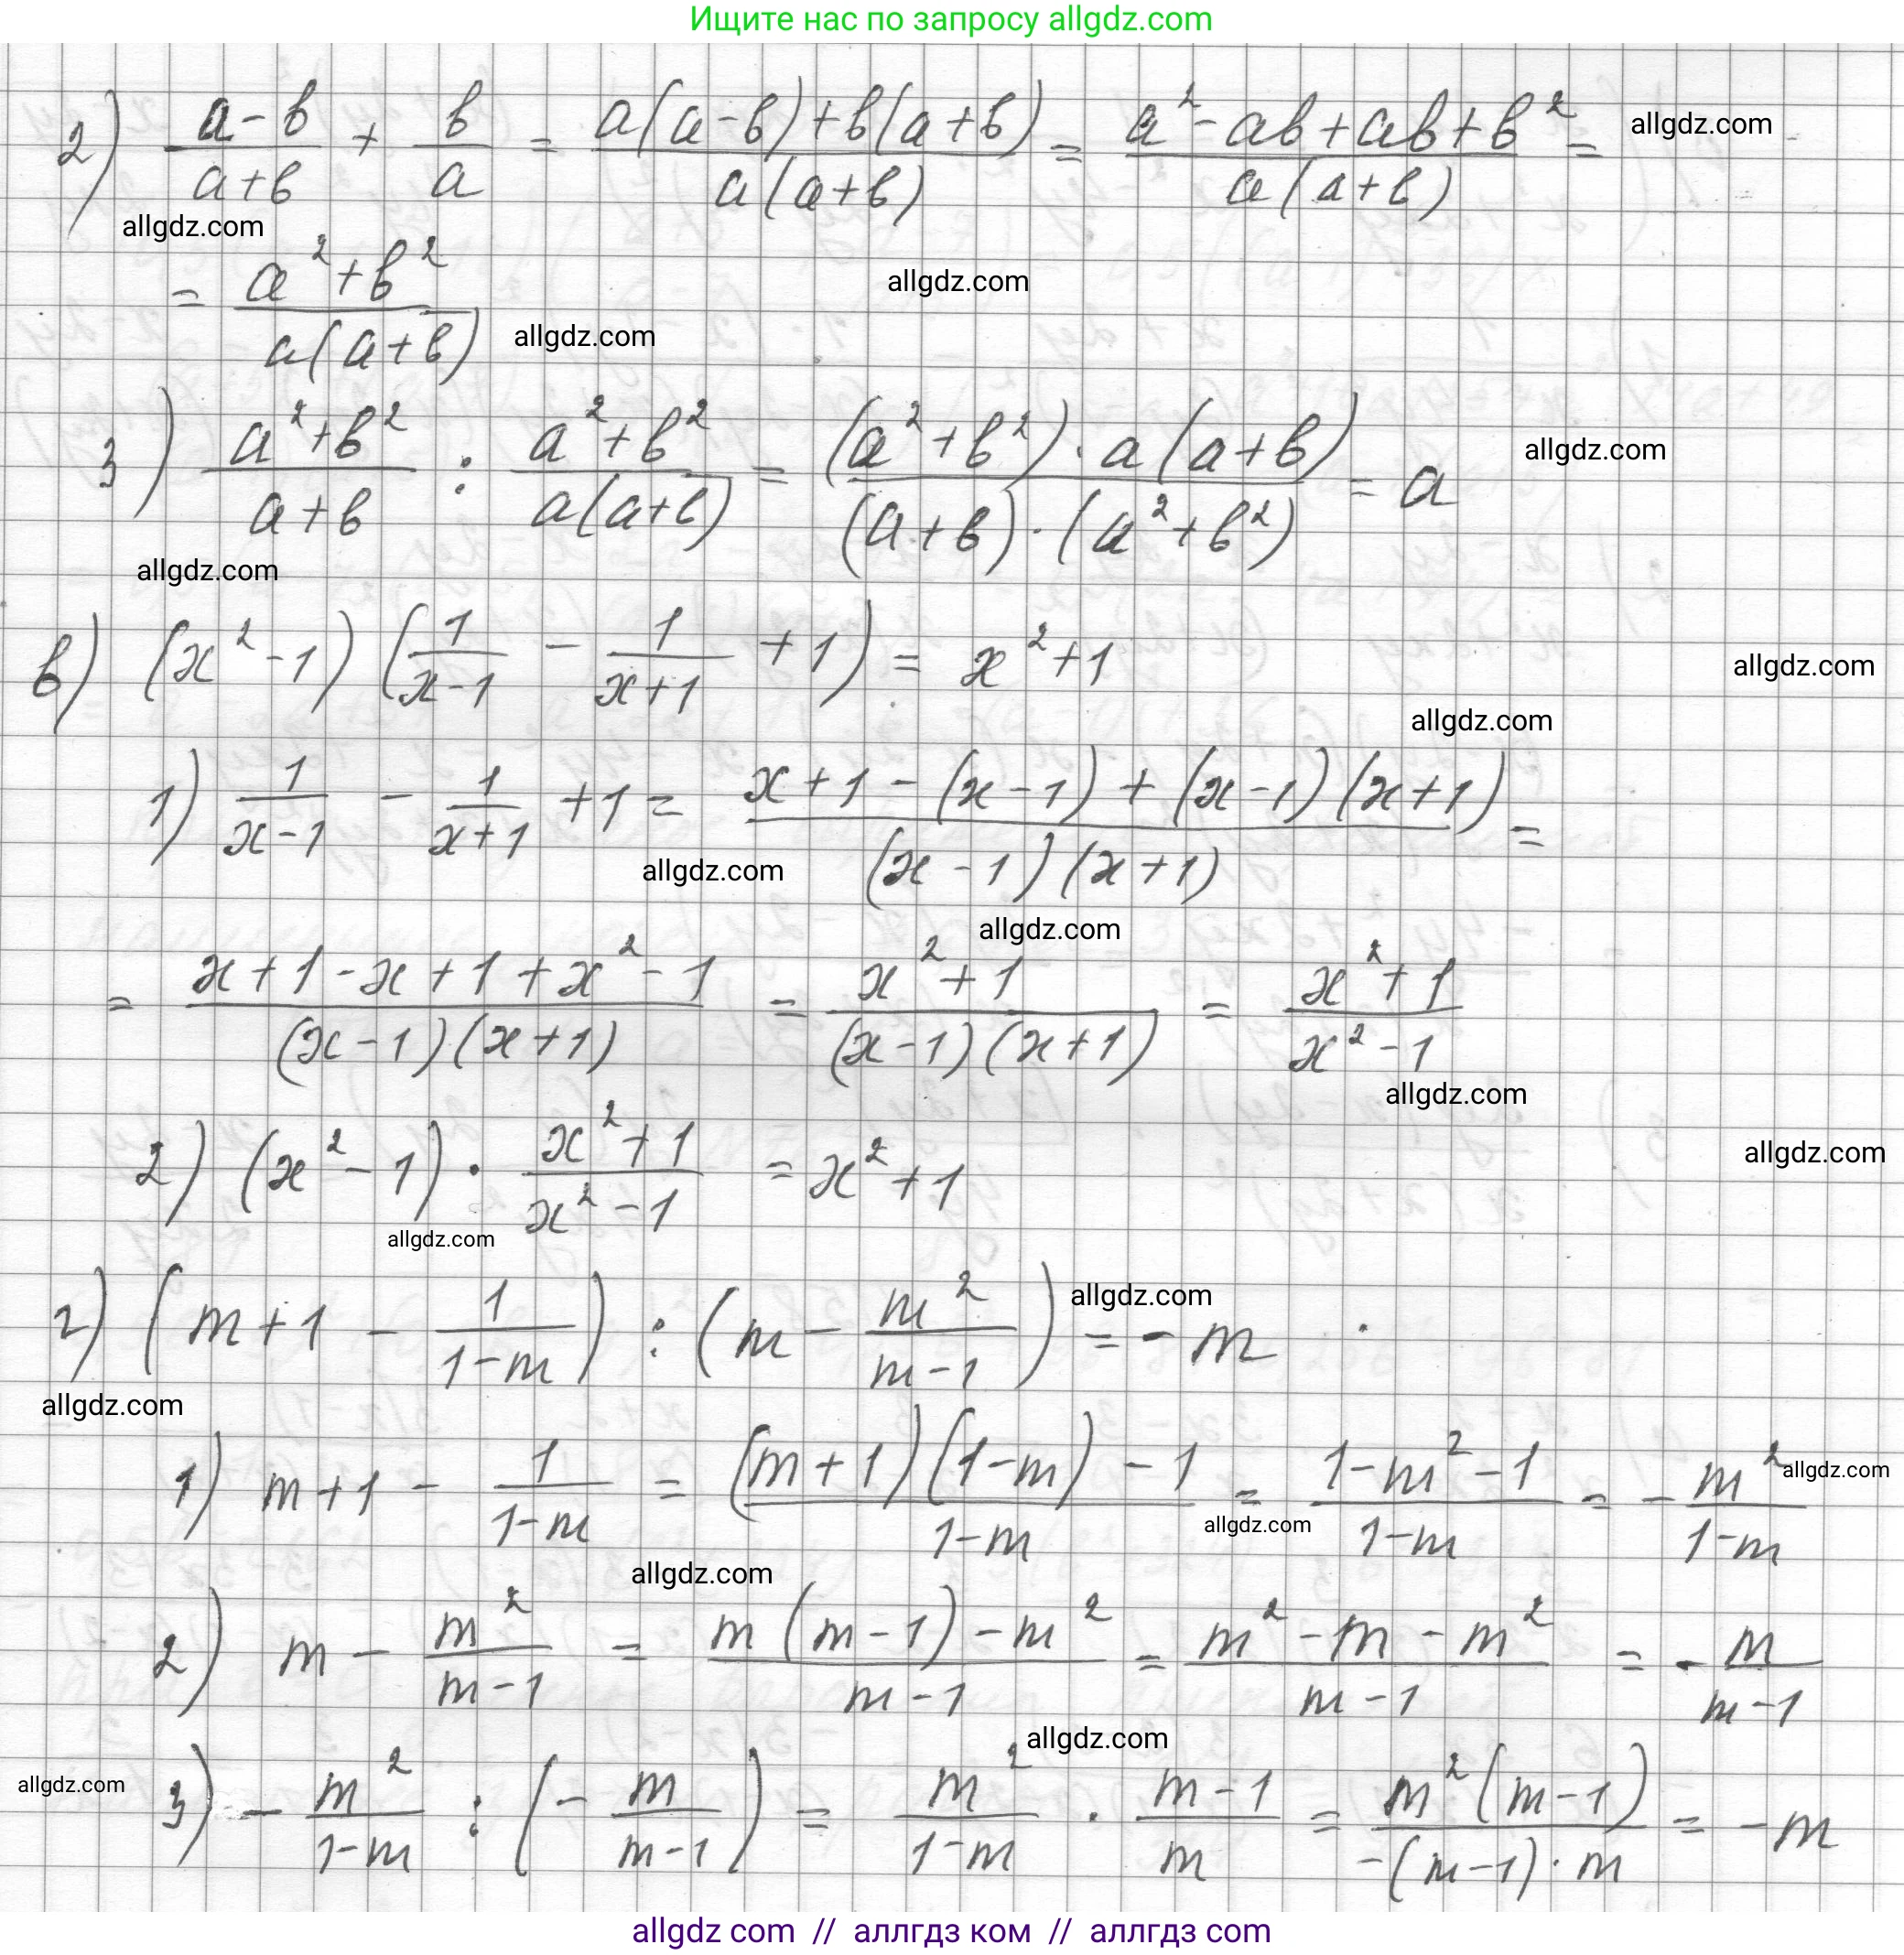 Ищите нас по запросу allgdz.com
2) (a-b)/(a+b) + b/a = (a(a-b)+b(a+b))/(a(a+b)) = (a²-ab+ab+b²)/(a(a+b)) = allgdz.com
allgdz.com
= (a²+b²)/(a(a+b)) allgdz.com allgdz.com
3) (a²+b²)/(a+b) : (a²+b²)/(a(a+b)) = ((a²+b²)·a(a+b))/((a+b)·(a²+b²)) = a allgdz.com
allgdz.com
в) (x²-1)(1/(x-1) - 1/(x+1) + 1) = x²+1 allgdz.com
allgdz.com
1) 1/(x-1) - 1/(x+1) + 1 = (x+1-(x-1)+(x-1)(x+1))/((x-1)(x+1)) =
allgdz.com
allgdz.com
= (x+1-x+1+x²-1)/((x-1)(x+1)) = (x²+1)/((x-1)(x+1)) = (x²+1)/(x²-1)
allgdz.com
2) (x²-1)·(x²+1)/(x²-1) = x²+1 allgdz.com
allgdz.com
г) (m+1 - 1/(1-m)) : (m - m²/(m-1)) = -m allgdz.com
allgdz.com
1) m+1 - 1/(1-m) = ((m+1)(1-m)-1)/(1-m) = (1-m²-1)/(1-m) = -m²/(1-m) allgdz.com
allgdz.com
allgdz.com
2) m - m²/(m-1) = (m(m-1)-m²)/(m-1) = (m²-m-m²)/(m-1) = -m/(m-1)
allgdz.com
allgdz.com 3) -m²/(1-m) : (-m/(m-1)) = m²/(1-m) · (m-1)/m = (m²(m-1))/(-(m-1)·m) = -m
allgdz com // аллгдз ком // аллгдз com